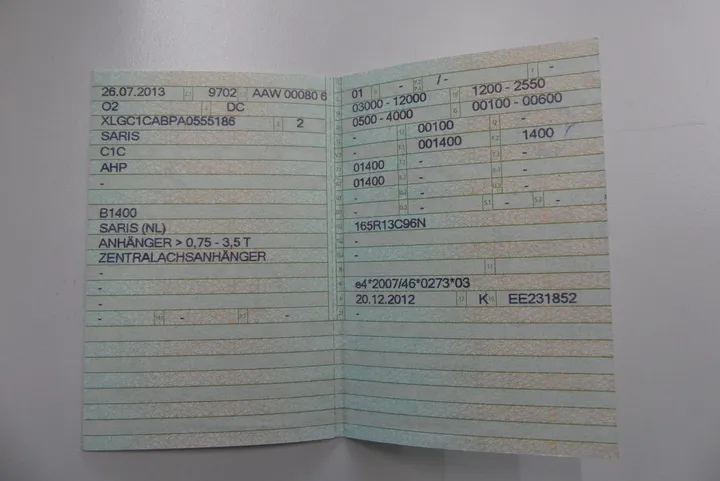 26.07.2013 9702 AAW 00080 6
O2 DC
XLGC1CABPA0555186 2
SARIS
C1C
AHP
-
B1400
SARIS (NL)
ANHÄNGER > 0,75 - 3,5 T
ZENTRALACHSANHÄNGER
-
-
-
- - -
01 - /- -
03000 - 12000 1200 - 2550
0500 - 4000 00100 - 00600
- 00100 -
- 001400 1400
01400 - -
01400 - -
- - - -
165R13C96N
-
-
e4*2007/46*0273*03
20.12.2012 K EE231852
-